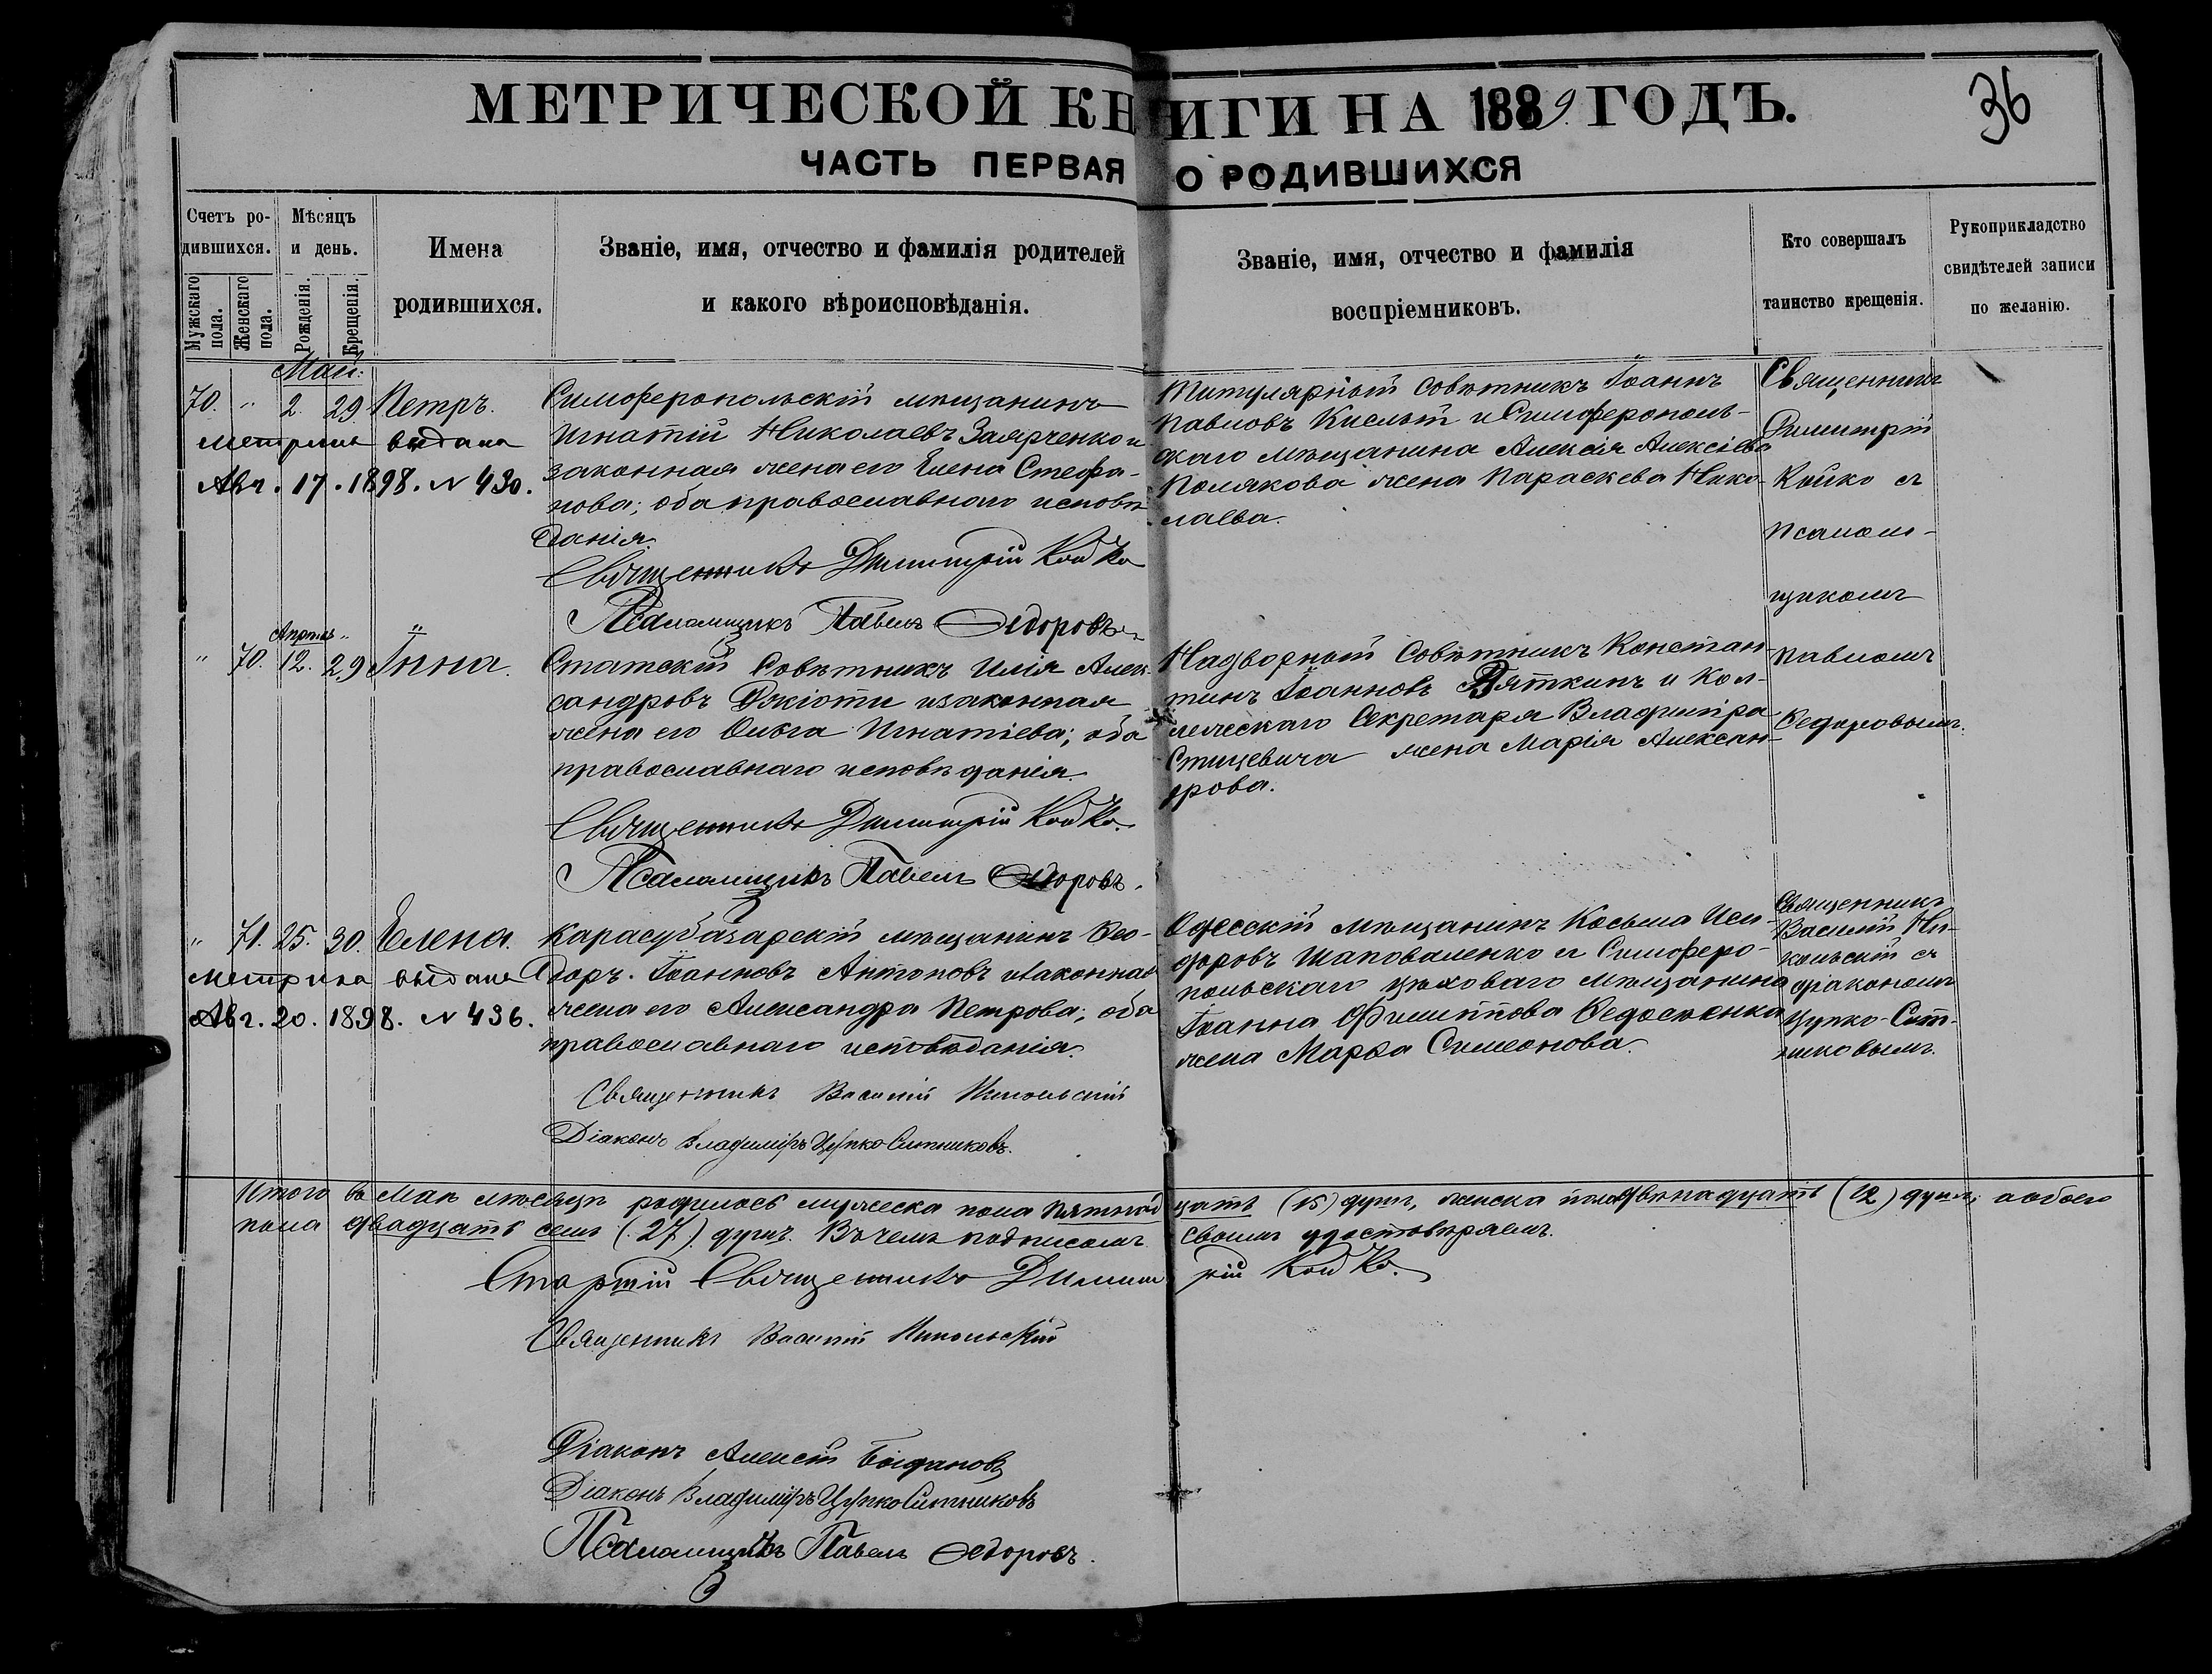 МЕТРИЧЕСКОЙ КНИГИ НА 1889 ГОДЪ.
36
ЧАСТЬ ПЕРВАЯ О РОДИВШИХСЯ
Счетъ ро-
дившихся.
Мужскаго пола.
Женскаго пола.
Мѣсяцъ
и день.
Рожденія.
Крещенія.
Имена
родившихся.
Званіе, имя, отчество и фамилія родителей
и какого вѣроисповѣданія.
Званіе, имя, отчество и фамилія
воспріемниковъ.
Кто совершалъ
таинство крещенія.
Рукоприкладство
свидѣтелей записи
по желанію.
Май:
70. " 2. 29 Петръ.
Метрика выдана
Авг. 17. 1898. № 430.
Симферопольскій мѣщанинъ
Игнатій Николаевъ Заярченко и
законная жена его Елена Стефа-
нова; оба православнаго исповѣ
данія.
Священникъ Димитрій Койко
Псаломщикъ Павелъ Ѳедоровъ
Титулярный Совѣтникъ Іоаннъ
Павловъ и Симферополь-
скаго мѣщанина Алексія Алексіева
Полякова жена Параскева Нико-
лаева.
Священникъ
Димитрій
Койко съ
псалом-
щикомъ
Павломъ
Ѳедоровымъ.
Апрѣль "
" 70. 12. 29 Інна.
Статскій Совѣтникъ Илія Алек-
сандровъ Джіоти и законная
жена его Ольга Игнатіева; оба
православнаго исповѣданія.
Священникъ Димитрій Койко.
Псаломщикъ Павелъ Ѳедоровъ.
Надворный Совѣтникъ Констан-
тинъ Іоанновъ Вяткинъ и Кол-
лежскаго Секретаря Владиміра
жена Марія Алексан-
дрова.
" 71. 25. 30. Елена.
Метрика выдана
Авг. 20. 1898. № 436.
Карасубазарскій мѣщанинъ Ѳео-
доръ Іоанновъ Антоновъ и законная
жена его Александра Петрова; оба
православнаго исповѣданія.
Священникъ Василій Никольскій
Діаконъ Владиміръ Цупко-Ситниковъ.
Одесскій мѣщанинъ Косьма Иси-
доровъ Шаповаленко и Симферо-
польскаго цѣховаго мѣщанина
Іоанна Филиппова Федосеенка
жена Марѳа Симеонова.
Священникъ
Василій Ни-
кольскій съ
діакономъ
Цупко-Сит-
никовымъ.
Итого въ Маѣ мѣсяцѣ родилось мужеска пола пятнадцать (15) душъ, женска пола двѣнадцать (12) душъ, а обоего
пола двадцать семь (27) душъ. Въ чемъ подписомъ своимъ удостовѣряемъ.
Старшій Священникъ Димитрій Койко.
Священникъ Василій Никольскій
Діаконъ Алексій Богдановъ
Діаконъ Владиміръ Цупко Ситниковъ
Псаломщикъ Павелъ Ѳедоровъ.